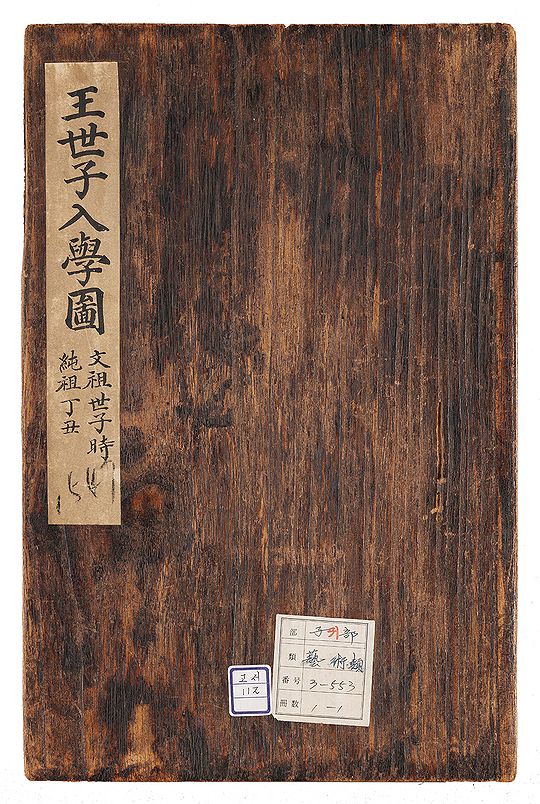 王世子入學圖
文祖世子時
純祖丁丑
고서
部 子 部
類 藝術類
番号 3-553
冊数 1-1